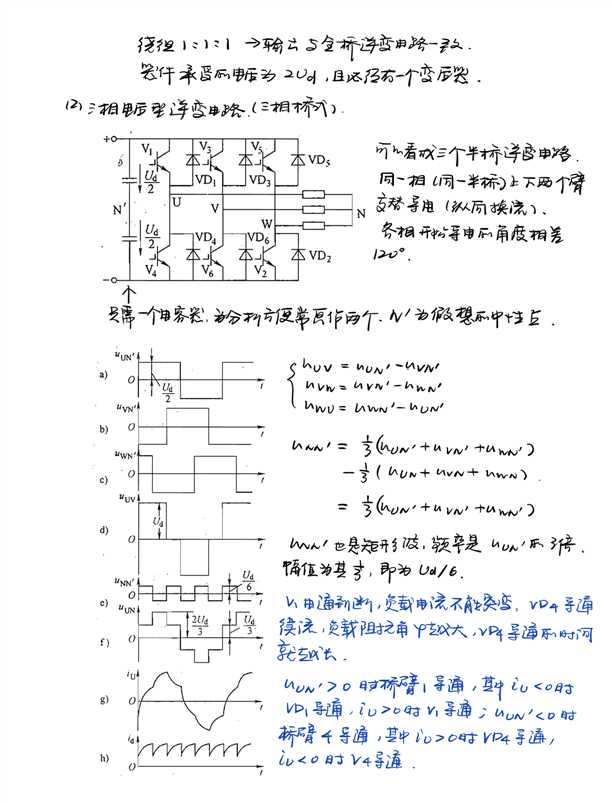 绕组1:1:1 → 输出与全桥逆变电路一致.
器件承受的电压为2Ud,且必须有一个变压器.
(2)三相电压型逆变电路.(三相桥式).
+
V1 V3 V5
VD1 VD3 VD5
Ud/2
N'
U
V
W
N
Ud/2
VD4 VD6 VD2
V4 V6 V2
−
可以看成三个半桥逆变电路.
同一相(同一半桥)上下两个臂
交替导电(纵向换流).
各相开始导电的角度相差
120°.
只需一个电容器,为分析方便常画作两个. N'为假想的中性点.
a) uUN' O Ud/2 t
b) uVN' O t
c) uWN' O t
d) uUV O Ud t
e) uNN' O Ud/6 t
f) uUN O 2Ud/3 Ud/3 t
g) iU O t
h) id O t
uUV = uUN' - uVN'
uVW = uVN' - uWN'
uWU = uWN' - uUN'
uNN' = 1/3(uUN' + uVN' + uWN')
- 1/3(uUN + uVN + uWN)
= 1/3(uUN' + uVN' + uWN')
uNN'也是矩形波,频率是uUN'的3倍.
幅值为其1/3,即为Ud/6.
V1由通到断,负载电流不能突变,VD4导通
续流,负载阻抗角φ越大,VD4导通的时间
就越长.
uUN'>0时桥臂1导通,其中iU<0时
VD1导通,iU>0时V1导通;uUN'<0时
桥臂4导通,其中iU>0时VD4导通,
iU<0时V4导通.